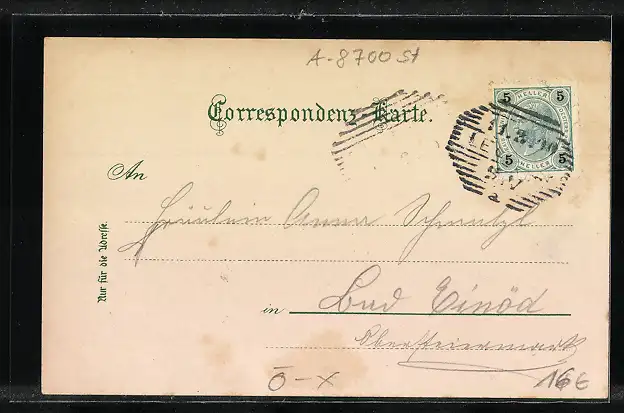 A-8700 St
Correspondenz-Karte.
5 HELLER 5
5 HELLER 5
LE
a
An
Fräulein Anna
Nur für die Adresse.
in Bad Einöd
Obersteiermark
Ö-X
16€